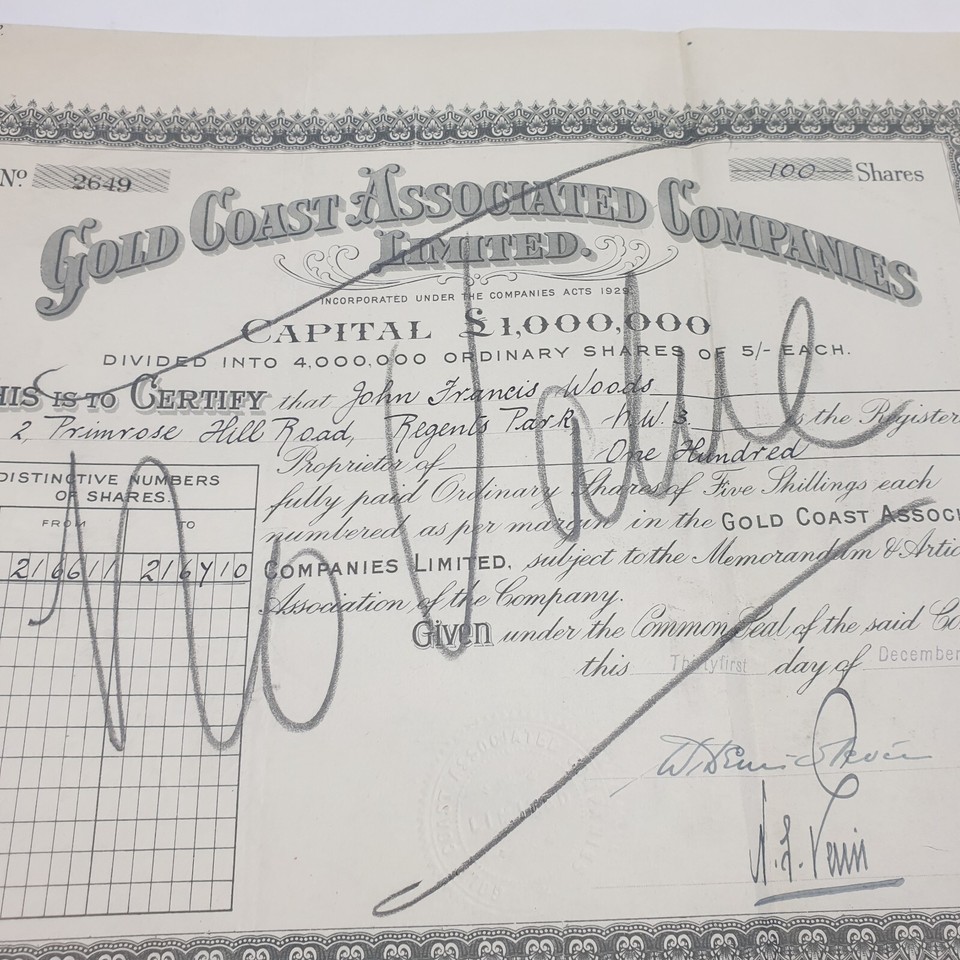 No. 2649
100 Shares
GOLD COAST ASSOCIATED COMPANIES
LIMITED.
INCORPORATED UNDER THE COMPANIES ACTS 1929.
CAPITAL £1,000,000
DIVIDED INTO 4,000,000 ORDINARY SHARES OF 5/- EACH.
HIS IS TO CERTIFY that John Francis Woods
2, Primrose Hill Road, Regents Park N.W.3. is the Register
Proprietor of One Hundred
fully paid Ordinary Shares of Five Shillings each
numbered as per margin in the GOLD COAST ASSOC
COMPANIES LIMITED, subject to the Memorandum & Artic
Association of the Company.
Given under the Common Seal of the said Co
this Thirtyfirst day of December
DISTINCTIVE NUMBERS
OF SHARES.
FROM TO
216611 216710
No Value